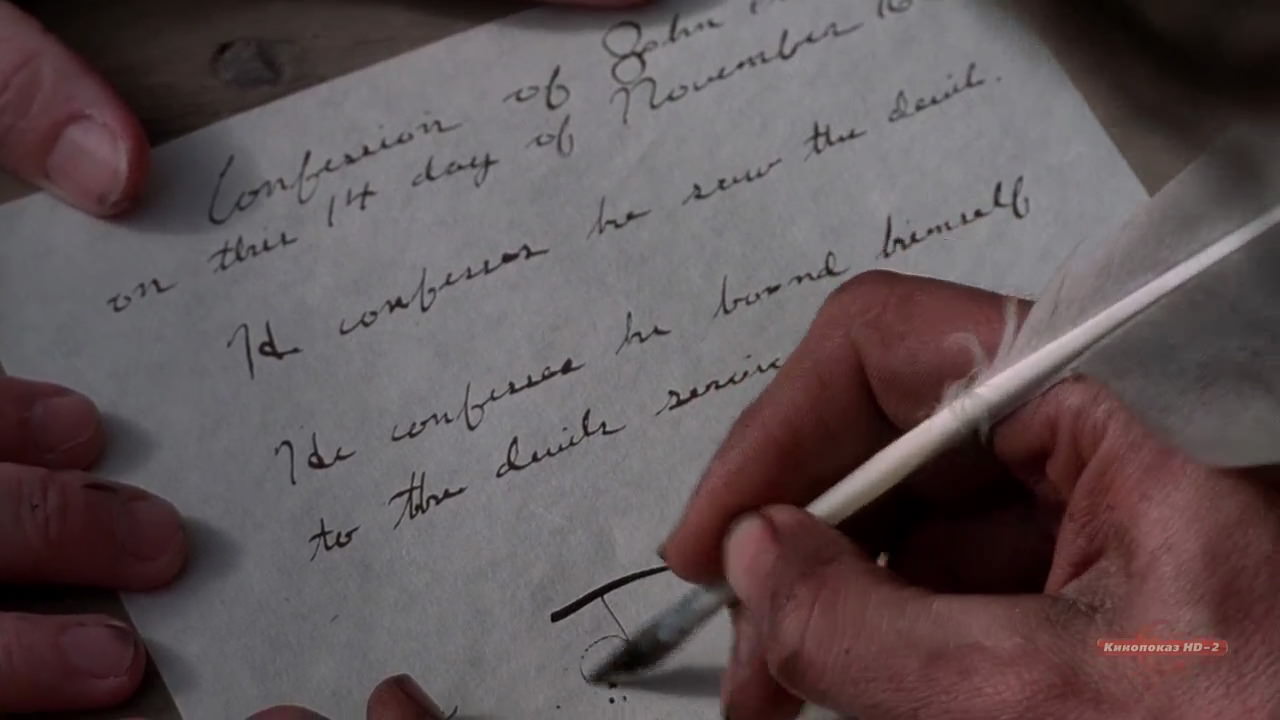 Confession of John
on this 14 day of November 16
He confesses he saw the devil.
He confesses he bound himself
to the devils servic
Кинопоказ HD-2